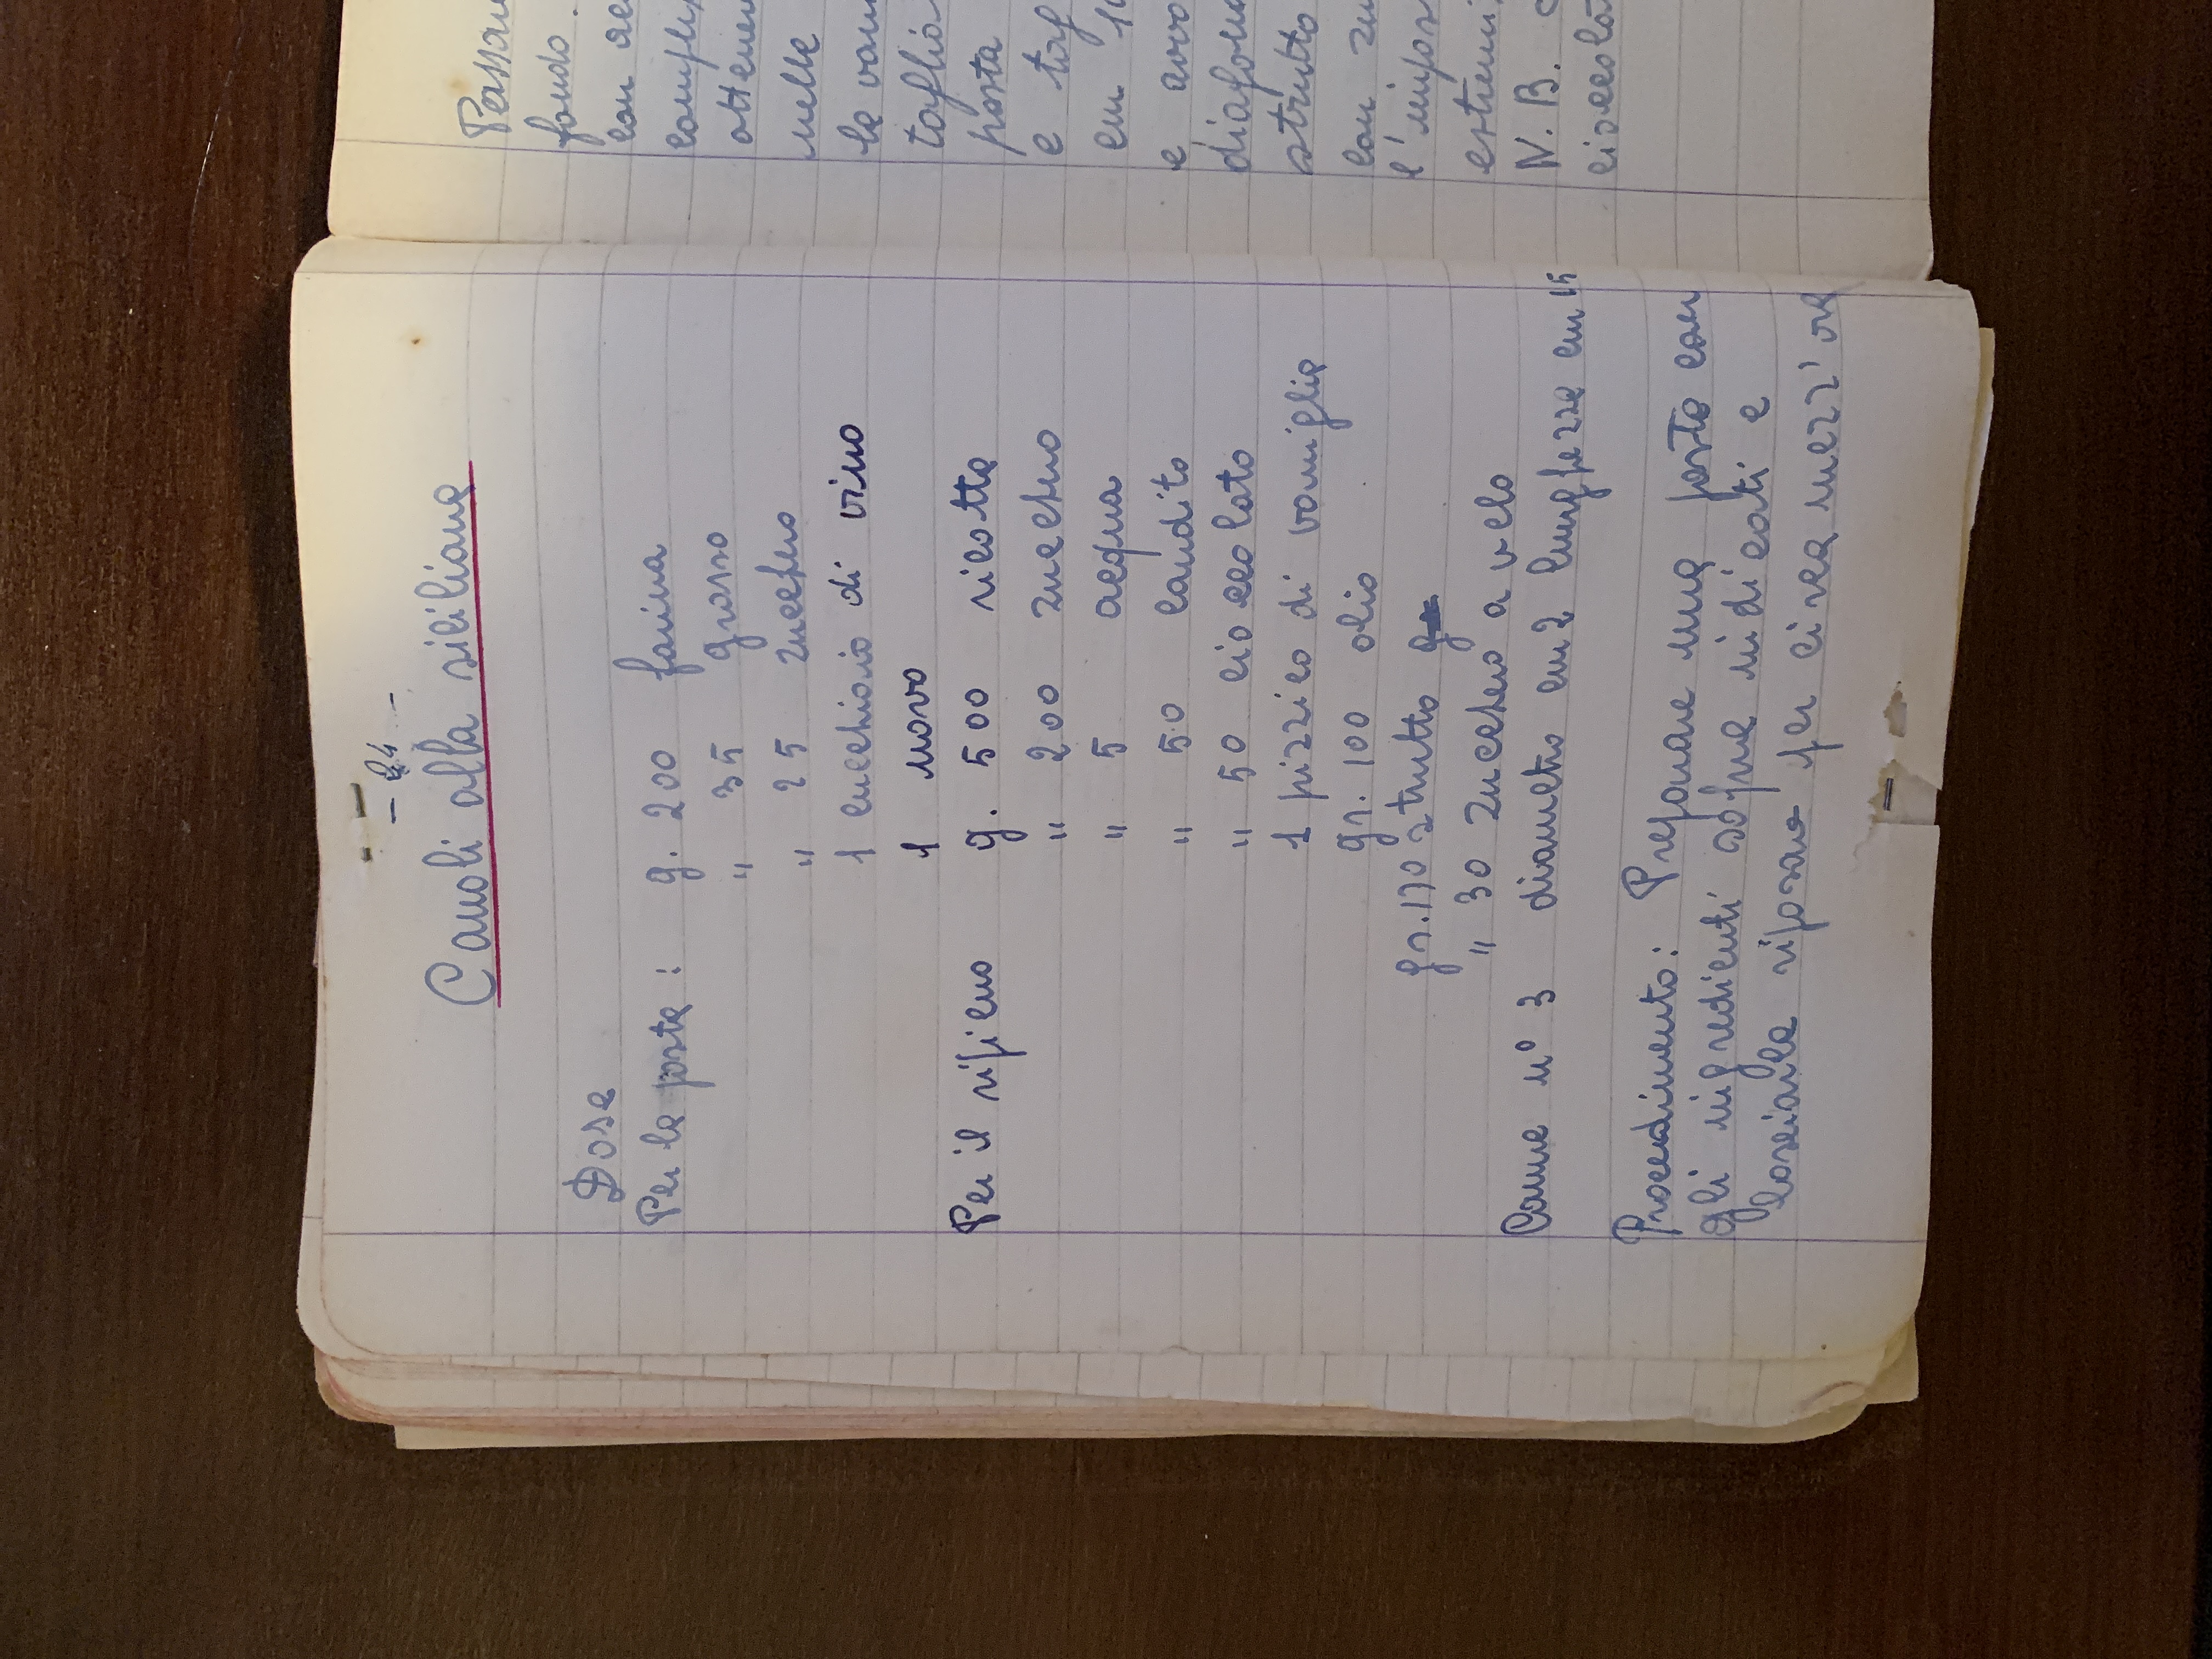 - 24 -
Canoli alla siciliana
Dose
Per la pasta : g. 200 farina
" 35 grasso
" 25 zucchero
1 cucchiaio di vino
1 uovo
Per il ripieno g. 500 ricotta
" 200 zucchero
" 5 acqua
" 50 candito
" 50 cioccolato
1 pizzico di vaniglia
gr. 100 olio
gr. 170 strutto
" 30 zucchero a velo
Canne n° 3 diametro cm 2 lunghezza cm 15
Procedimento: Preparare una pasta con
gli ingredienti sopra indicati e
lasciarla riposare per circa mezz'ora
fondo.
con
nelle
la
pasta
e
cm
e
strutto
con
N. B.